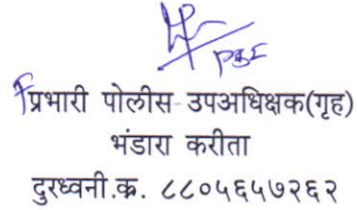 PSI
प्रभारी पोलीस उपअधिक्षक(गृह)
भंडारा करीता
दुरध्वनी.क्र. ८८०५६५७२६२